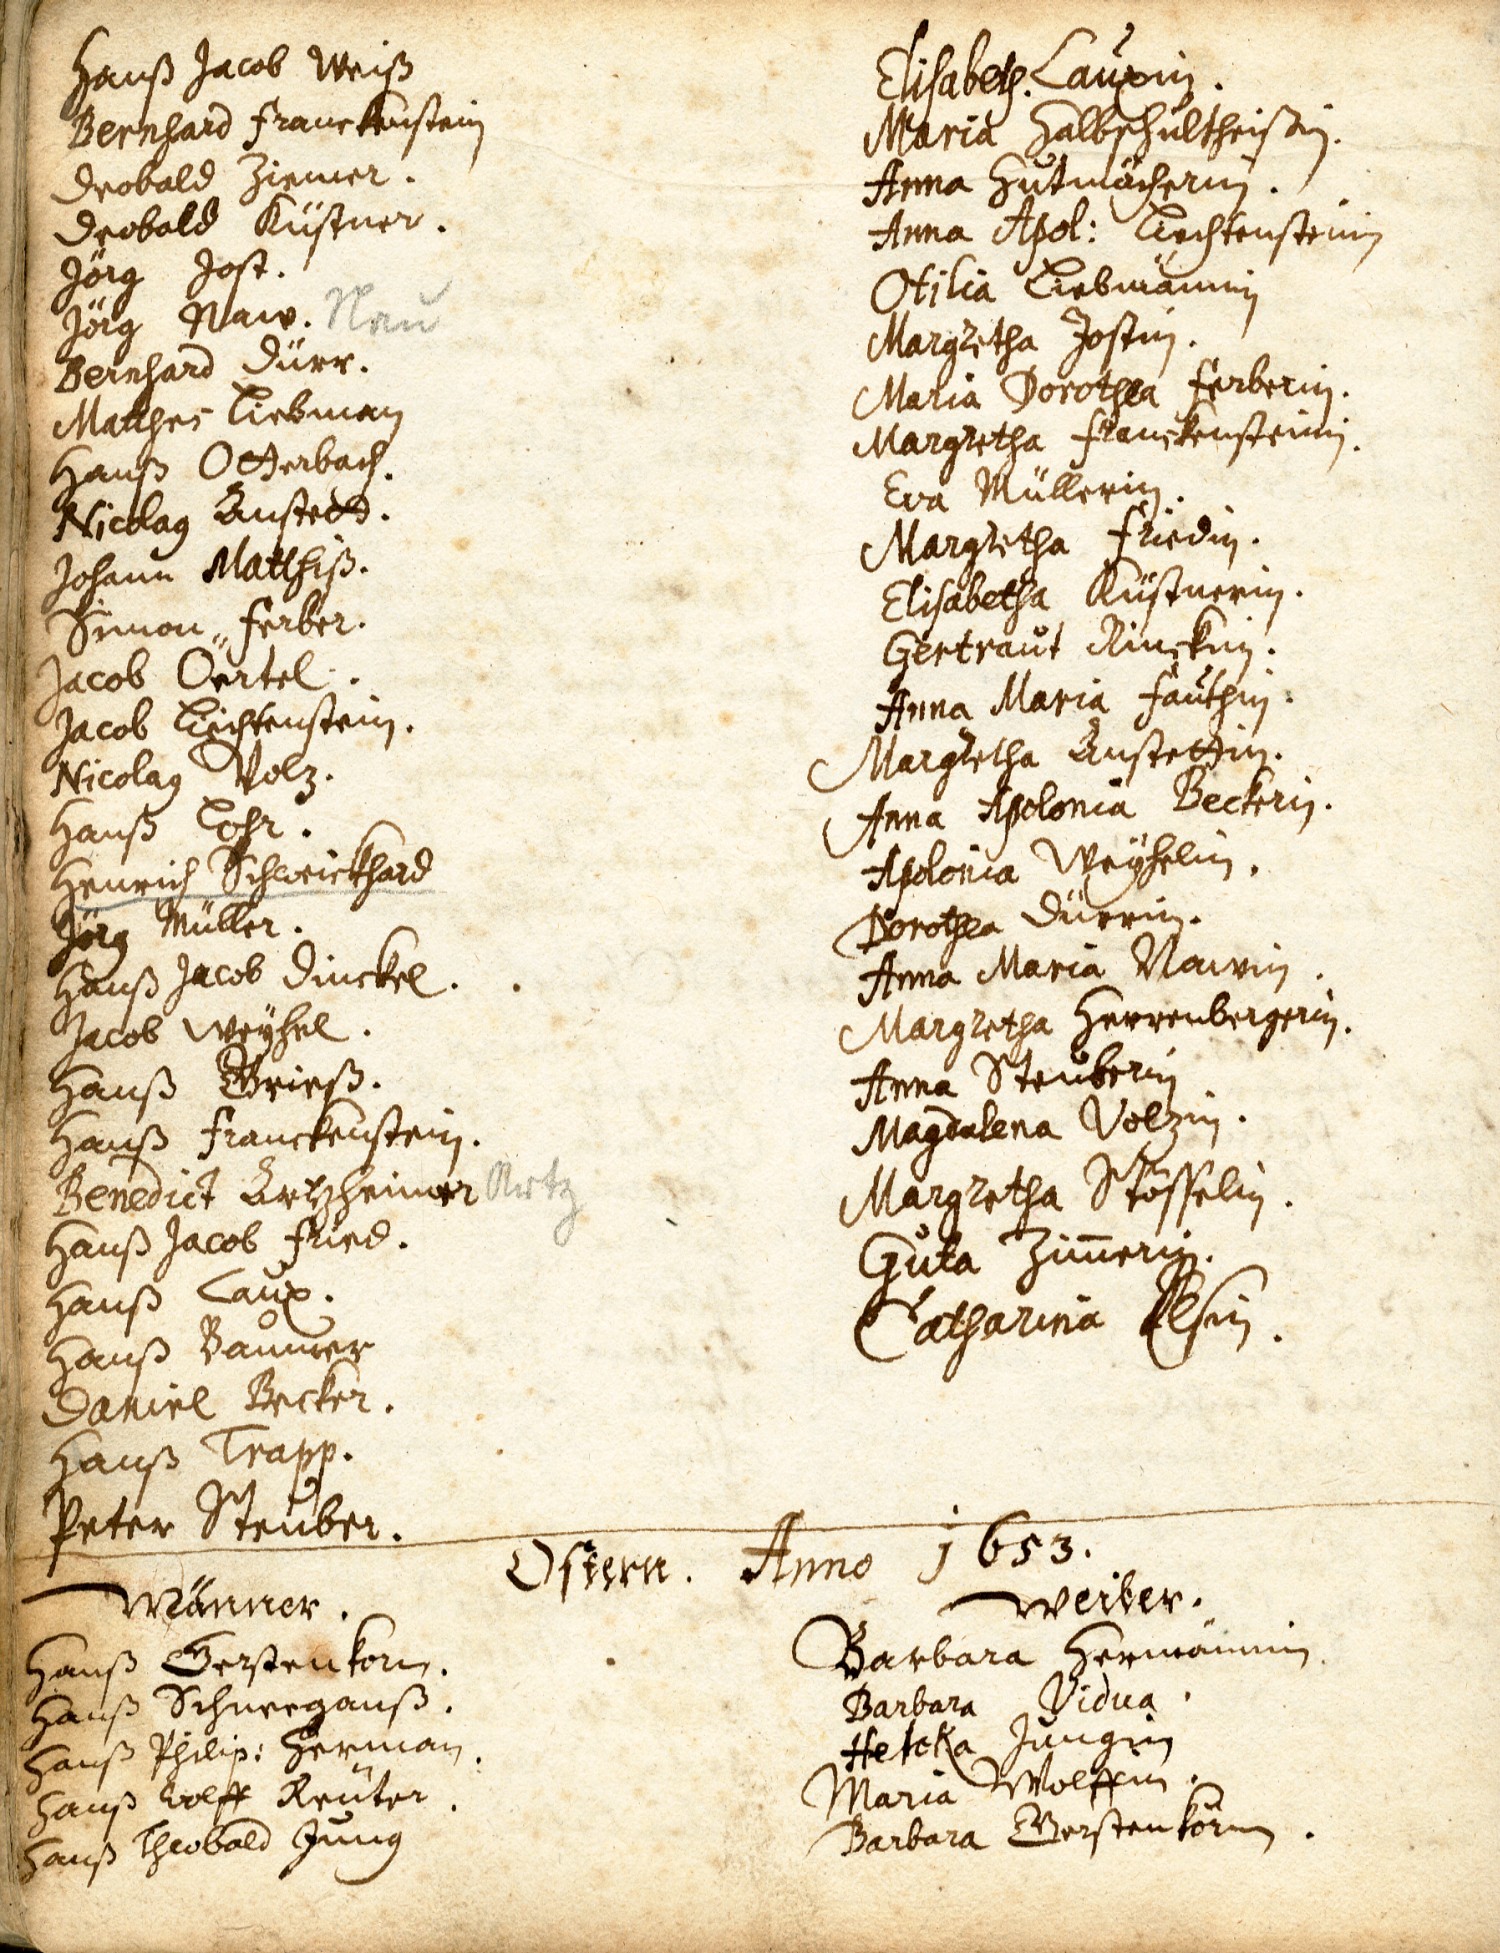 Hanß Jacob Weiß
Bernhard Franckenstein
Deobald Ziemer.
Deobald Küstner.
Jörg Jost.
Jörg Naw. Nau
Bernhard Dürr.
Matthes Liebman
Hanß Otterbach.
Nicolag Anstett.
Johann Matthiß.
Simon Ferber.
Jacob Oertel.
Jacob Liechtenstein.
Nicolag Volz.
Hanß Lohr.
Henrich Schweickhard
Jörg Müller.
Hanß Jacob Dinckel.
Jacob Weyhel.
Hanß Grieß.
Hanß Franckenstein.
Benedict Artzheimer Artz
Hanß Jacob Fried.
Hanß Laux.
Hanß Bammer
Daniel Becker.
Hanß Trapp.
Peter Steuber.
Elisabeth. Lauxin.
Maria Halbschultheisin.
Anna Hutmacherin.
Anna Apol: Liechtensteinin
Otilia Liebmännin
Margretha Jostin.
Maria Dorothea Ferberin.
Margretha Franckensteinin.
Eva Müllerin.
Margretha Friedin.
Elisabetha Küstnerin.
Gertraut Rinckin.
Anna Maria Fauthin.
Margretha Anstettin.
Anna Apolonia Beckerin.
Apolonia Weyhelin.
Dorothea Dürrin.
Anna Maria Nawin.
Margretha Herrenbergerin.
Anna Steuberin
Magdalena Volzin.
Margretha Stösselin.
Guta Zim̄erin.
Catharina
Ostern. Anno 1653.
Männer.
Hanß Gerstenkorn.
Hanß Schneeganß.
Hanß Philip: Herman.
Hanß Wolff Reuter.
Hanß Theobald Jung
Weiber.
Barbara Hermännin.
Barbara Vidua.
Jungin
Maria Wolffin.
Barbara Gerstenkörnin.